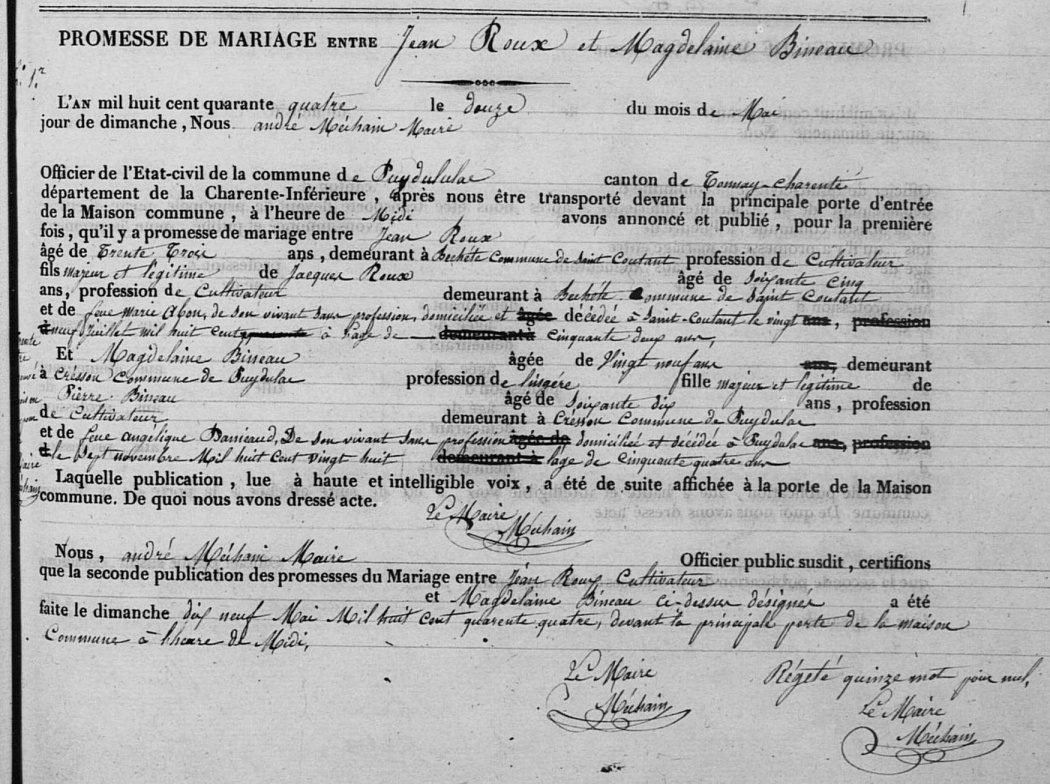 PROMESSE DE MARIAGE ENTRE Jean Roux et Magdelaine Bineau
N.º 1.er
L'AN mil huit cent quarante quatre le douze du mois de Mai
jour de dimanche, Nous andré Méchain Maire
Officier de l'Etat-civil de la commune de Puydululac canton de Tonnay-charente
département de la Charente-Inférieure, après nous être transporté devant la principale porte d'entrée
de la Maison commune, à l'heure de Midi avons annoncé et publié, pour la première
fois, qu'il y a promesse de mariage entre Jean Roux
âgé de Trente Trois ans, demeurant à Bechéte Commune de Saint Coutant profession de Cultivateur
fils majeur et legitime de Jacques Roux âgé de Soixante Cinq
ans, profession de Cultivateur demeurant à Bechéte Commune de Saint Coutant
et de feue Marie de son vivant sans profession, domiciliée et âgée décédée à Saint-Coutant le vingt ans, profession
neuf Juillet mil huit cent à l'age de demeurant à Cinquante deux ans,
Et Magdelaine Bineau âgée de Vingt neuf ans ans, demeurant
à Cresson Commune de Puydulac profession de lingére fille majeur et legitime de
Pierre Bineau âgé de Soixante dix ans, profession
de Cultivateur demeurant à Cresson Commune de Puydulac
et de feue angélique De son vivant sans profession âgée de domiciliée et décédée à Puydulac ans, profession
le Sept novembre Mil huit Cent vingt huit demeurant à l'age de Cinquante quatre ans
Laquelle publication, lue à haute et intelligible voix, a été de suite affichée à la porte de la Maison
commune. De quoi nous avons dressé acte.
Le Maire
Méchain
Nous, andré Méchain Maire Officier public susdit, certifions
que la seconde publication des promesses du Mariage entre Jean Roux Cultivateur
et Magdelaine Bineau ci-dessus désignés a été
faite le dimanche dix neuf Mai Mil huit Cent quarente quatre, devant la principale porte de la maison
Commune à l'heure de Midi,
Le Maire
Méchain
Régeté quinze mot pour nul,
Le Maire
Méchain